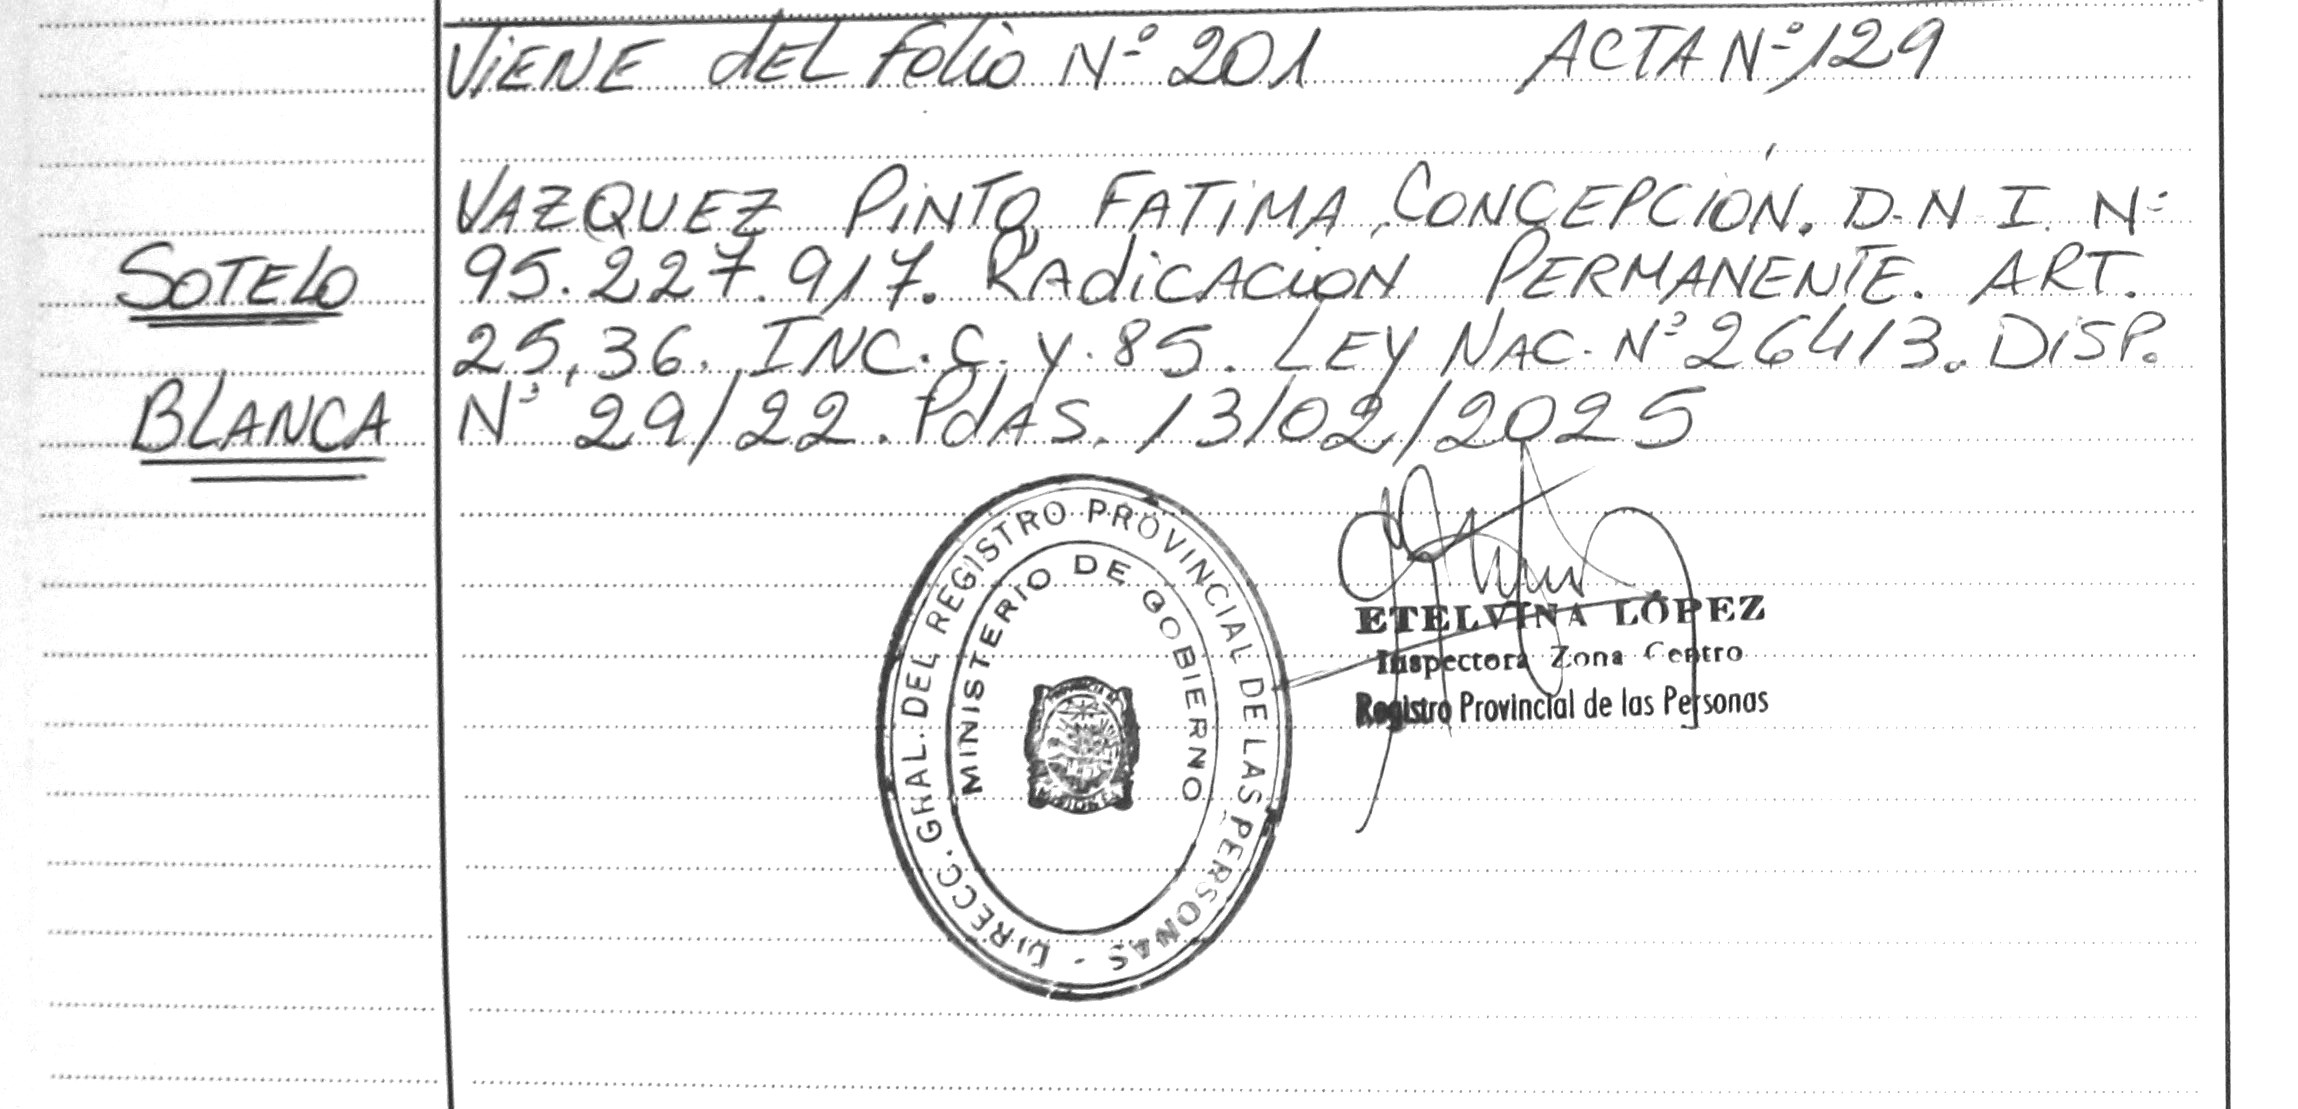 ViENE dEL Folio N° 201 ACTA N° 129
VAZQUEZ PiNTO, FATiMA CONCEPCIÓN. D.N.I. N°
SOTELO
95.227.917. RAdiCACiÓN PERMANENTE. ART.
25, 36. INC. C. y. 85. LEY NAC. N° 26413. DiSP.
BLANCA
N° 29/22. PdAS. 13/02/2025
DIRECC. GRAL. DEL REGISTRO PROVINCIAL DE LAS PERSONAS -
MINISTERIO DE GOBIERNO
ETELVINA LÓPEZ
Inspectora Zona Centro
Registro Provincial de las Personas